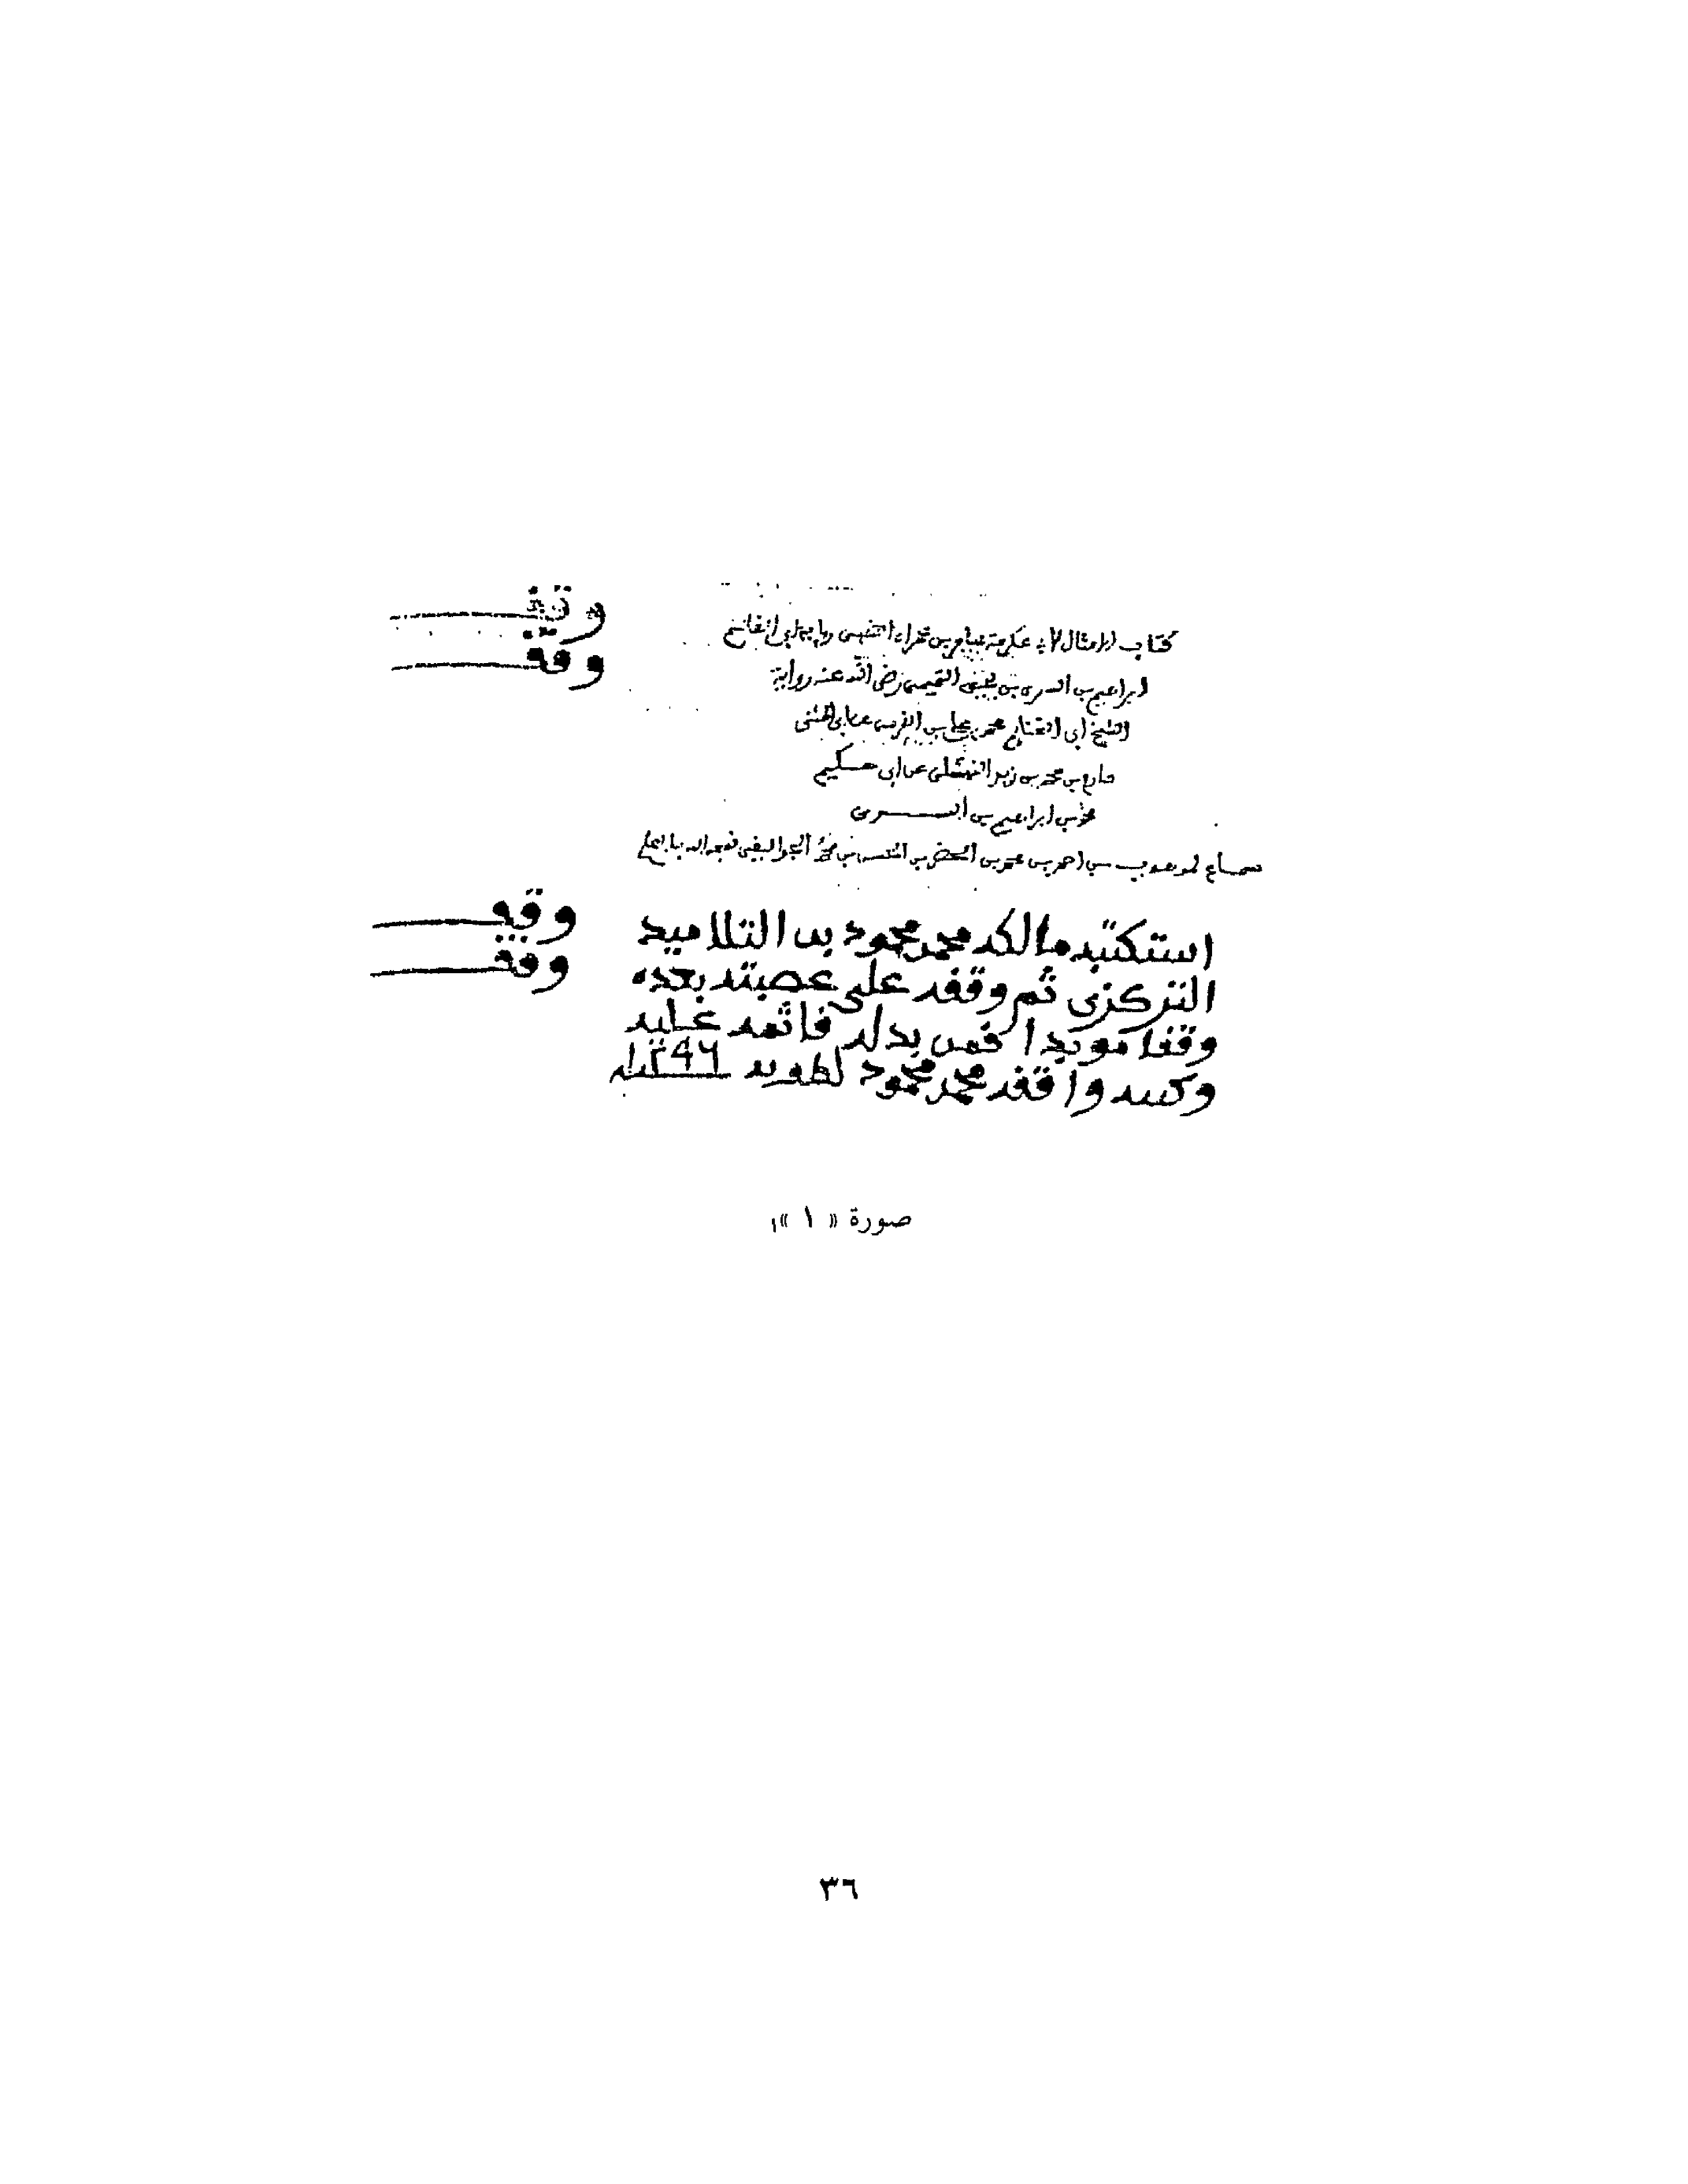 كتاب الامثال لابي عكرمة عامر بن عمران الضبي رواية ابي القاسم
ابراهيم بن السري بن يحيى التميمي رضي الله عنه رواية
الشيخ ابي الغنايم محمد بن علي بن النرسي عن ابي المثنى
دارم بن محمد بن زيد النهشلي عن ابي حكيم
عن ابراهيم بن السرى
سماع لموهوب بن احمد بن محمد بن الخضر بن الحسن بن محمد الجواليقي نفعه الله بالعلم
وقف
وقف
استكتبه مالكه محمد محمود بن التلاميد
التركزى ثم وقفه على عصبته بعده
وقفا موبدا فمن بدله فاثمه عليه
وكتبه واقفه محمد محمود لطف به سنة ١٢٩٦
وقف
وقف
صورة « ١ »
٣٦